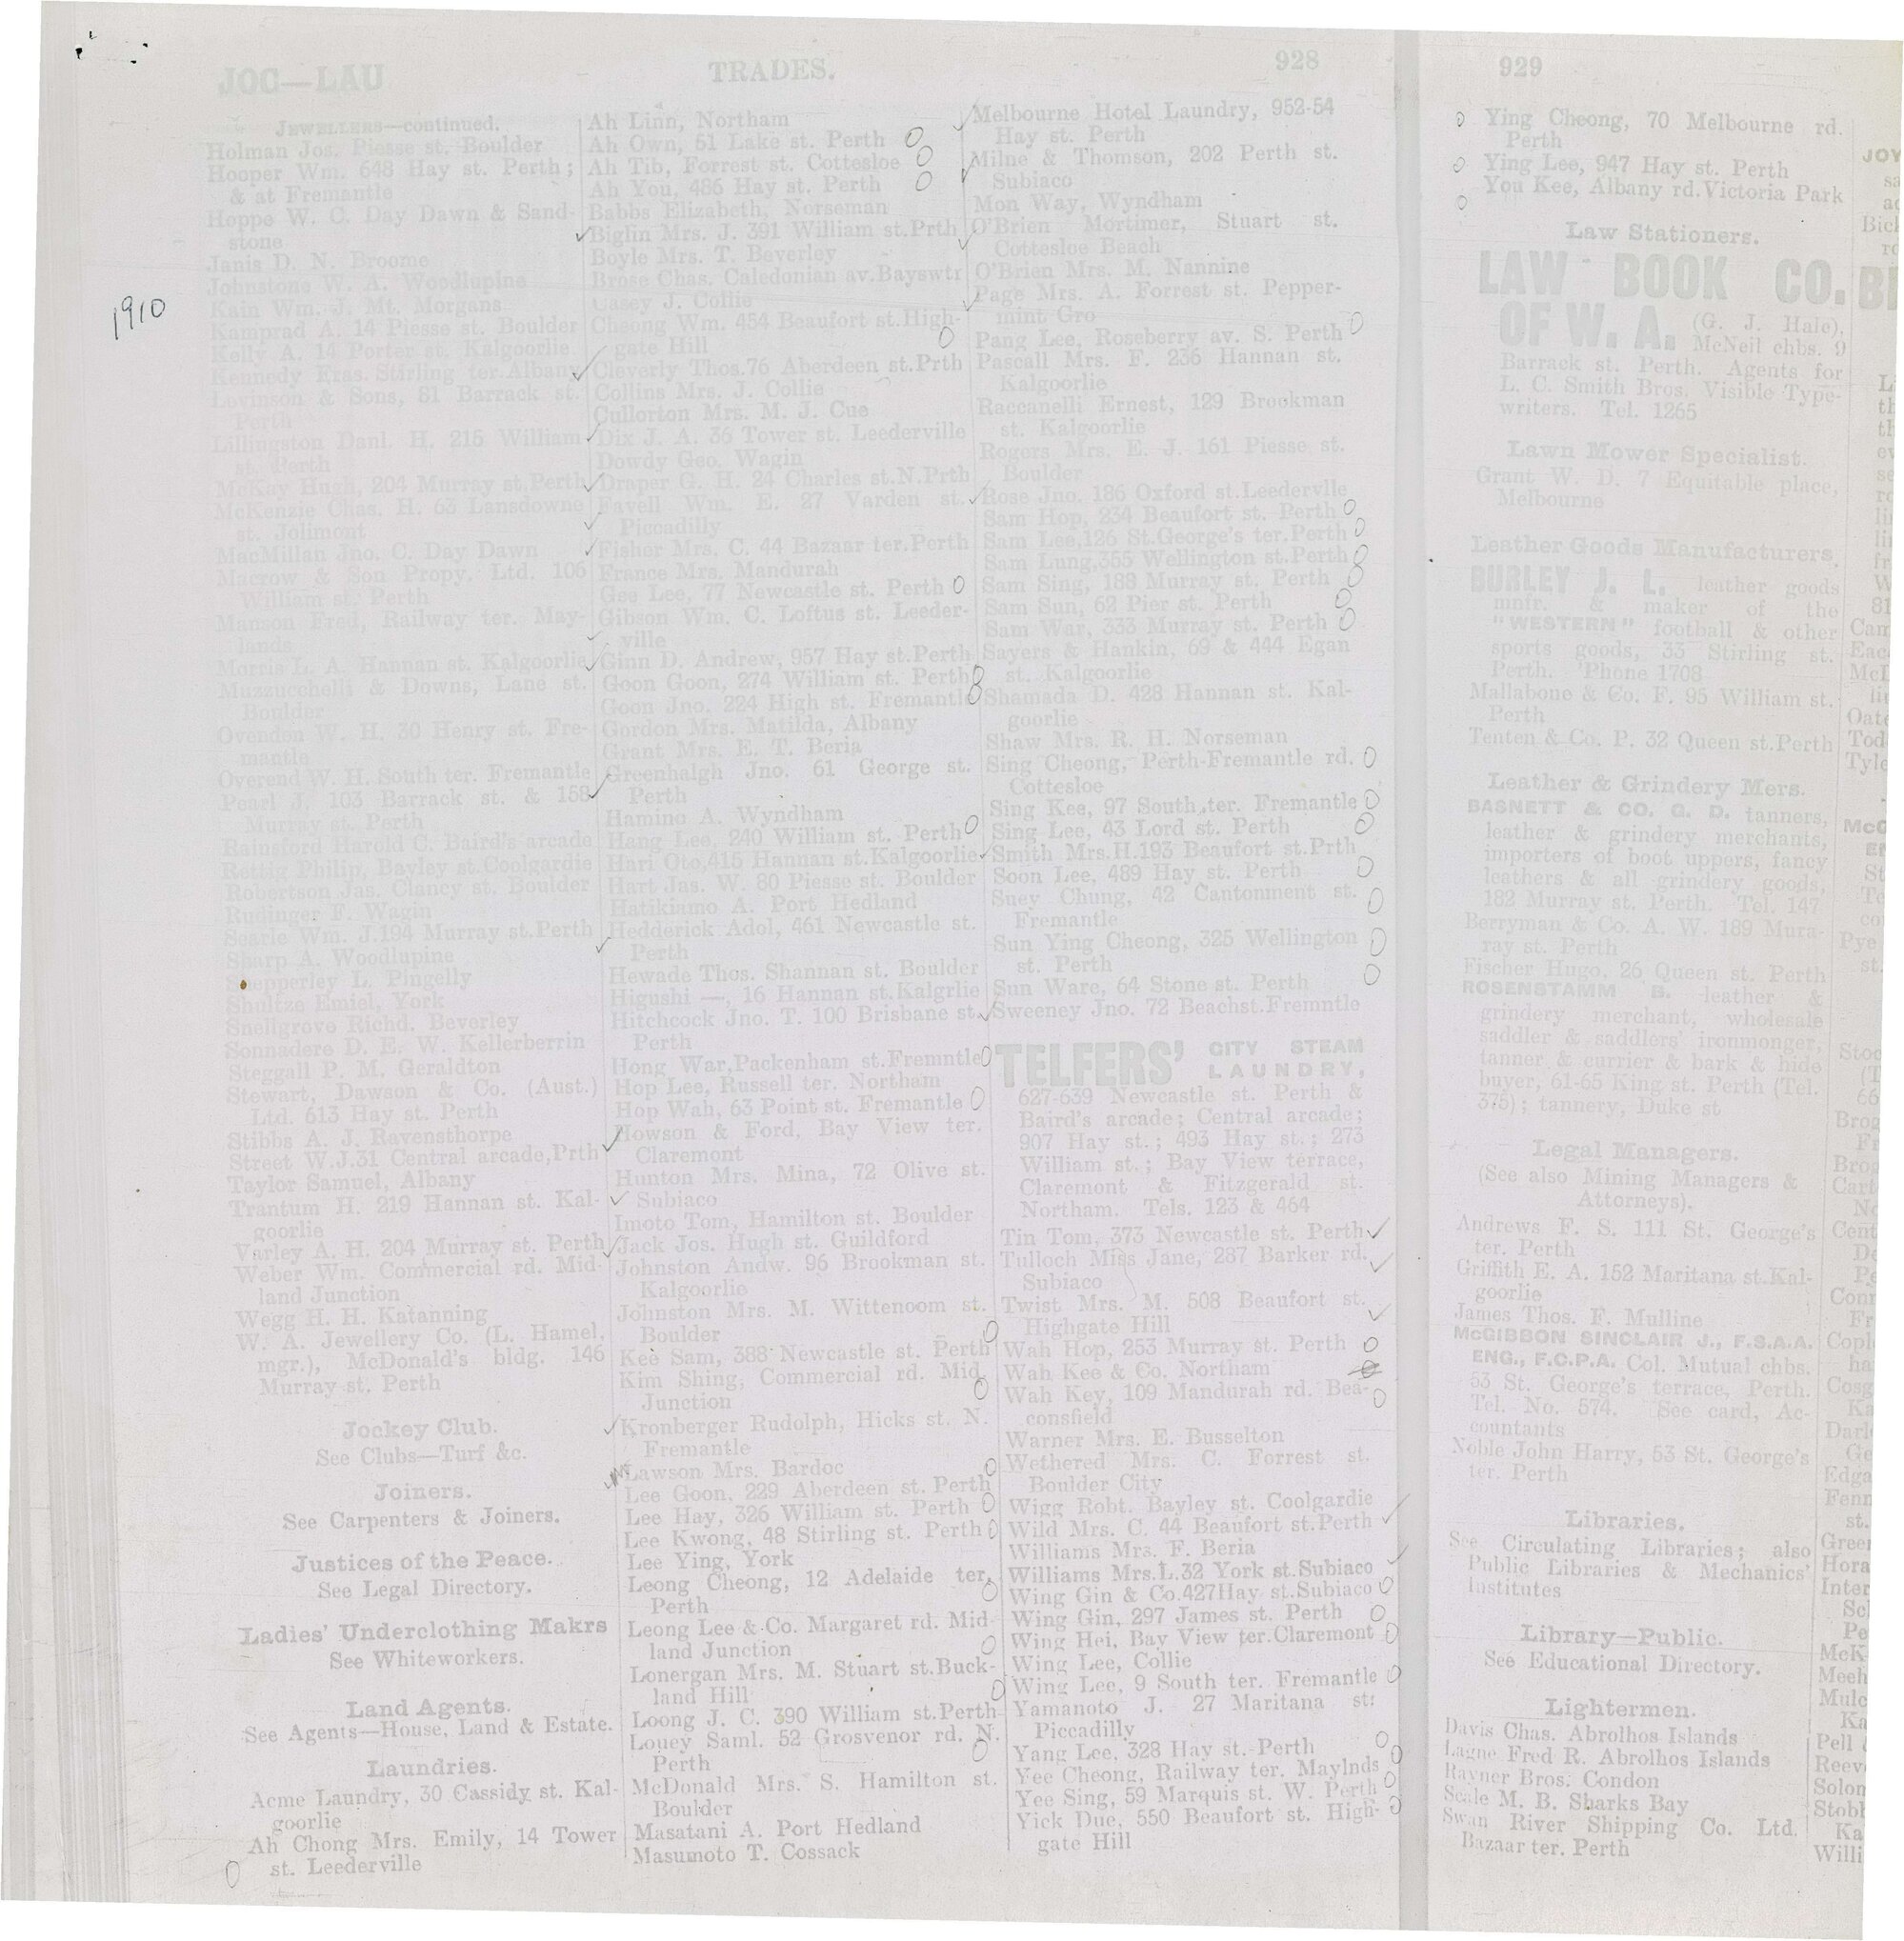 1910
JOC—LAU
TRADES.
928
JEWELLERS—continued.
Holman Jos. Piesse st. Boulder
Hooper Wm. 648 Hay st. Perth;
& at Fremantle
Hoppe W. C. Day Dawn & Sand-
stone
Janis D. N. Broome
Johnstone W. A. Woodlupine
Kain Wm. J. Mt. Morgans
Kamprad A. 14 Piesse st. Boulder
Kelly A. 14 Porter st. Kalgoorlie
Kennedy Eras. Stirling ter. Albany
Levinson & Sons, 81 Barrack st.
Perth
Lillingston Danl. H. 215 William
st. Perth
McKay Hugh, 204 Murray st.Perth
McKenzie Chas. H. 63 Lansdowne
st. Jolimont
MacMillan Jno. C. Day Dawn
Macrow & Son Propy. Ltd. 106
William st. Perth
Manson Fred, Railway ter. May-
lands
Morris L. A. Hannan st. Kalgoorlie
Muzzucchelli & Downs, Lane st.
Boulder
Ovenden W. H. 30 Henry st. Fre-
mantle
Overend W. H. South ter. Fremantle
Pearl J. 103 Barrack st. & 158
Murray st. Perth
Rainsford Harold C. Baird's arcade
Rettig Philip, Bayley st.Coolgardie
Robertson Jas. Clancy st. Boulder
Rudinger F. Wagin
Searle Wm. J.194 Murray st.Perth
Sharp A. Woodlupine
Shepperley L. Pingelly
Shultze Emiel, York
Snellgrove Richd. Beverley
Sonnadere D. E. W. Kellerberrin
Steggall P. M. Geraldton
Stewart, Dawson & Co. (Aust.)
Ltd. 613 Hay st. Perth
Stibbs A. J. Ravensthorpe
Street W.J.31 Central arcade,Prth
Taylor Samuel, Albany
Trantum H. 219 Hannan st. Kal-
goorlie
Varley A. H. 204 Murray st. Perth
Weber Wm. Commercial rd. Mid-
land Junction
Wegg H. H. Katanning
W. A. Jewellery Co. (L. Hamel,
mgr.), McDonald's bldg. 146
Murray st. Perth
Jockey Club.
See Clubs—Turf &c.
Joiners.
See Carpenters & Joiners.
Justices of the Peace.
See Legal Directory.
Ladies' Underclothing Makrs
See Whiteworkers.
Land Agents.
See Agents—House, Land & Estate.
Laundries.
Acme Laundry, 30 Cassidy st. Kal-
goorlie
Ah Chong Mrs. Emily, 14 Tower
st. Leederville
Ah Linn, Northam
Ah Own, 51 Lake st. Perth
Ah Tib, Forrest st. Cottesloe
Ah You, 486 Hay st. Perth
Babbs Elizabeth, Norseman
Biglin Mrs. J. 391 William st.Prth
Boyle Mrs. T. Beverley
Brose Chas. Caledonian av.Bayswtr
Casey J. Collie
Cheong Wm. 454 Beaufort st.High-
gate Hill
Cleverly Thos.76 Aberdeen st.Prth
Collins Mrs. J. Collie
Cullorton Mrs. M. J. Cue
Dix J. A. 36 Tower st. Leederville
Dowdy Geo. Wagin
Draper G. H. 24 Charles st.N.Prth
Favell Wm. E. 27 Varden st.
Piccadilly
Fisher Mrs. C. 44 Bazaar ter.Perth
France Mrs. Mandurah
Gee Lee, 77 Newcastle st. Perth
Gibson Wm. C. Loftus st. Leeder-
ville
Ginn D. Andrew, 957 Hay st.Perth
Goon Goon, 274 William st. Perth
Goon Jno. 224 High st. Fremantle
Gordon Mrs. Matilda, Albany
Grant Mrs. E. T. Beria
Greenhalgh Jno. 61 George st.
Perth
Hamino A. Wyndham
Hang Lee, 240 William st. Perth
Hari Oto,415 Hannan st.Kalgoorlie
Hart Jas. W. 80 Piesse st. Boulder
Hatikiamo A. Port Hedland
Hedderick Adol, 461 Newcastle st.
Perth
Hewade Thos. Shannan st. Boulder
Higushi —, 16 Hannan st.Kalgrlie
Hitchcock Jno. T. 100 Brisbane st.
Perth
Hong War,Packenham st.Fremntle
Hop Lee, Russell ter. Northam
Hop Wah, 63 Point st. Fremantle
Howson & Ford, Bay View ter.
Claremont
Hunton Mrs. Mina, 72 Olive st.
Subiaco
Imoto Tom, Hamilton st. Boulder
Jack Jos. Hugh st. Guildford
Johnston Andw. 96 Brookman st.
Kalgoorlie
Johnston Mrs. M. Wittenoom st.
Boulder
Kee Sam, 388 Newcastle st. Perth
Kim Shing, Commercial rd. Mid.
Junction
Kronberger Rudolph, Hicks st. N.
Fremantle
Lawson Mrs. Bardoc
Lee Goon, 229 Aberdeen st. Perth
Lee Hay, 326 William st. Perth
Lee Kwong, 48 Stirling st. Perth
Lee Ying, York
Leong Cheong, 12 Adelaide ter.
Perth
Leong Lee & Co. Margaret rd. Mid-
land Junction
Lonergan Mrs. M. Stuart st.Buck-
land Hill
Loong J. C. 390 William st.Perth
Louey Saml. 52 Grosvenor rd. N.
Perth
McDonald Mrs. S. Hamilton st.
Boulder
Masatani A. Port Hedland
Masumoto T. Cossack
Melbourne Hotel Laundry, 952-54
Hay st. Perth
Milne & Thomson, 202 Perth st.
Subiaco
Mon Way, Wyndham
O'Brien Mortimer, Stuart st.
Cottesloe Beach
O'Brien Mrs. M. Nannine
Page Mrs. A. Forrest st. Pepper-
mint Gro
Pang Lee, Roseberry av. S. Perth
Pascall Mrs. F. 236 Hannan st.
Kalgoorlie
Raccanelli Ernest, 129 Brookman
st. Kalgoorlie
Rogers Mrs. E. J. 161 Piesse st.
Boulder
Rose Jno. 186 Oxford st.Leedervlle
Sam Hop, 234 Beaufort st. Perth
Sam Lee,126 St.George's ter.Perth
Sam Lung,355 Wellington st.Perth
Sam Sing, 188 Murray st. Perth
Sam Sun, 62 Pier st. Perth
Sam War, 333 Murray st. Perth
Sayers & Hankin, 69 & 444 Egan
st. Kalgoorlie
Shamada D. 428 Hannan st. Kal-
goorlie
Shaw Mrs. R. H. Norseman
Sing Cheong, Perth-Fremantle rd.
Cottesloe
Sing Kee, 97 South ter. Fremantle
Sing Lee, 43 Lord st. Perth
Smith Mrs.H.193 Beaufort st.Prth
Soon Lee, 489 Hay st. Perth
Suey Chung, 42 Cantonment st.
Fremantle
Sun Ying Cheong, 325 Wellington
st. Perth
Sun Ware, 64 Stone st. Perth
Sweeney Jno. 72 Beachst.Fremntle
TELFERS' CITY STEAM
LAUNDRY,
627-639 Newcastle st. Perth &
Baird's arcade; Central arcade;
907 Hay st.; 493 Hay st.; 273
William st.; Bay View terrace,
Claremont & Fitzgerald st.
Northam. Tels. 123 & 464
Tin Tom, 373 Newcastle st. Perth
Tulloch Miss Jane, 287 Barker rd.
Subiaco
Twist Mrs. M. 508 Beaufort st.
Highgate Hill
Wah Hop, 253 Murray st. Perth
Wah Kee & Co. Northam
Wah Key, 109 Mandurah rd. Bea-
consfield
Warner Mrs. E. Busselton
Wethered Mrs. C. Forrest st.
Boulder City
Wigg Robt. Bayley st. Coolgardie
Wild Mrs. C. 44 Beaufort st.Perth
Williams Mrs. F. Beria
Williams Mrs.L.32 York st.Subiaco
Wing Gin & Co.427Hay st.Subiaco
Wing Gin, 297 James st. Perth
Wing Hei, Bay View ter.Claremont
Wing Lee, Collie
Wing Lee, 9 South ter. Fremantle
Yamanoto J. 27 Maritana st.
Piccadilly
Yang Lee, 328 Hay st. Perth
Yee Cheong, Railway ter. Maylnds
Yee Sing, 59 Marquis st. W. Perth
Yick Due, 550 Beaufort st. High-
gate Hill
929
Ying Cheong, 70 Melbourne rd.
Perth
Ying Lee, 947 Hay st. Perth
You Kee, Albany rd.Victoria Park
Law Stationers.
LAW BOOK CO.
OF W. A. (G. J. Hale),
McNeil chbs. 9
Barrack st. Perth. Agents for
L. C. Smith Bros. Visible Type-
writers. Tel. 1265
Lawn Mower Specialist.
Grant W. D. 7 Equitable place,
Melbourne
Leather Goods Manufacturers.
BURLEY J. L. leather goods
mnfr. & maker of the
"WESTERN" football & other
sports goods, 33 Stirling st.
Perth. 'Phone 1708
Mallabone & Co. F. 95 William st.
Perth
Tenten & Co. P. 32 Queen st.Perth
Leather & Grindery Mers.
BASNETT & CO. G. D. tanners,
leather & grindery merchants,
importers of boot uppers, fancy
leathers & all grindery goods,
182 Murray st. Perth. Tel. 147
Berryman & Co. A. W. 189 Mura-
ray st. Perth
Fischer Hugo, 26 Queen st. Perth
ROSENSTAMM B. leather &
grindery merchant, wholesale
saddler & saddlers' ironmonger,
tanner & currier & bark & hide
buyer, 61-65 King st. Perth (Tel.
375); tannery, Duke st
Legal Managers.
(See also Mining Managers &
Attorneys).
Andrews F. S. 111 St. George's
ter. Perth
Griffith E. A. 152 Maritana st.Kal-
goorlie
James Thos. F. Mulline
McGIBBON SINCLAIR J., F.S.A.A.
ENG., F.C.P.A. Col. Mutual chbs.
53 St. George's terrace, Perth.
Tel. No. 574. See card, Ac-
countants
Noble John Harry, 53 St. George's
ter. Perth
Libraries.
See Circulating Libraries; also
Public Libraries & Mechanics'
Institutes
Library—Public.
See Educational Directory.
Lightermen.
Davis Chas. Abrolhos Islands
Lagne Fred R. Abrolhos Islands
Rayner Bros. Condon
Scale M. B. Sharks Bay
Swan River Shipping Co. Ltd.
Bazaar ter. Perth